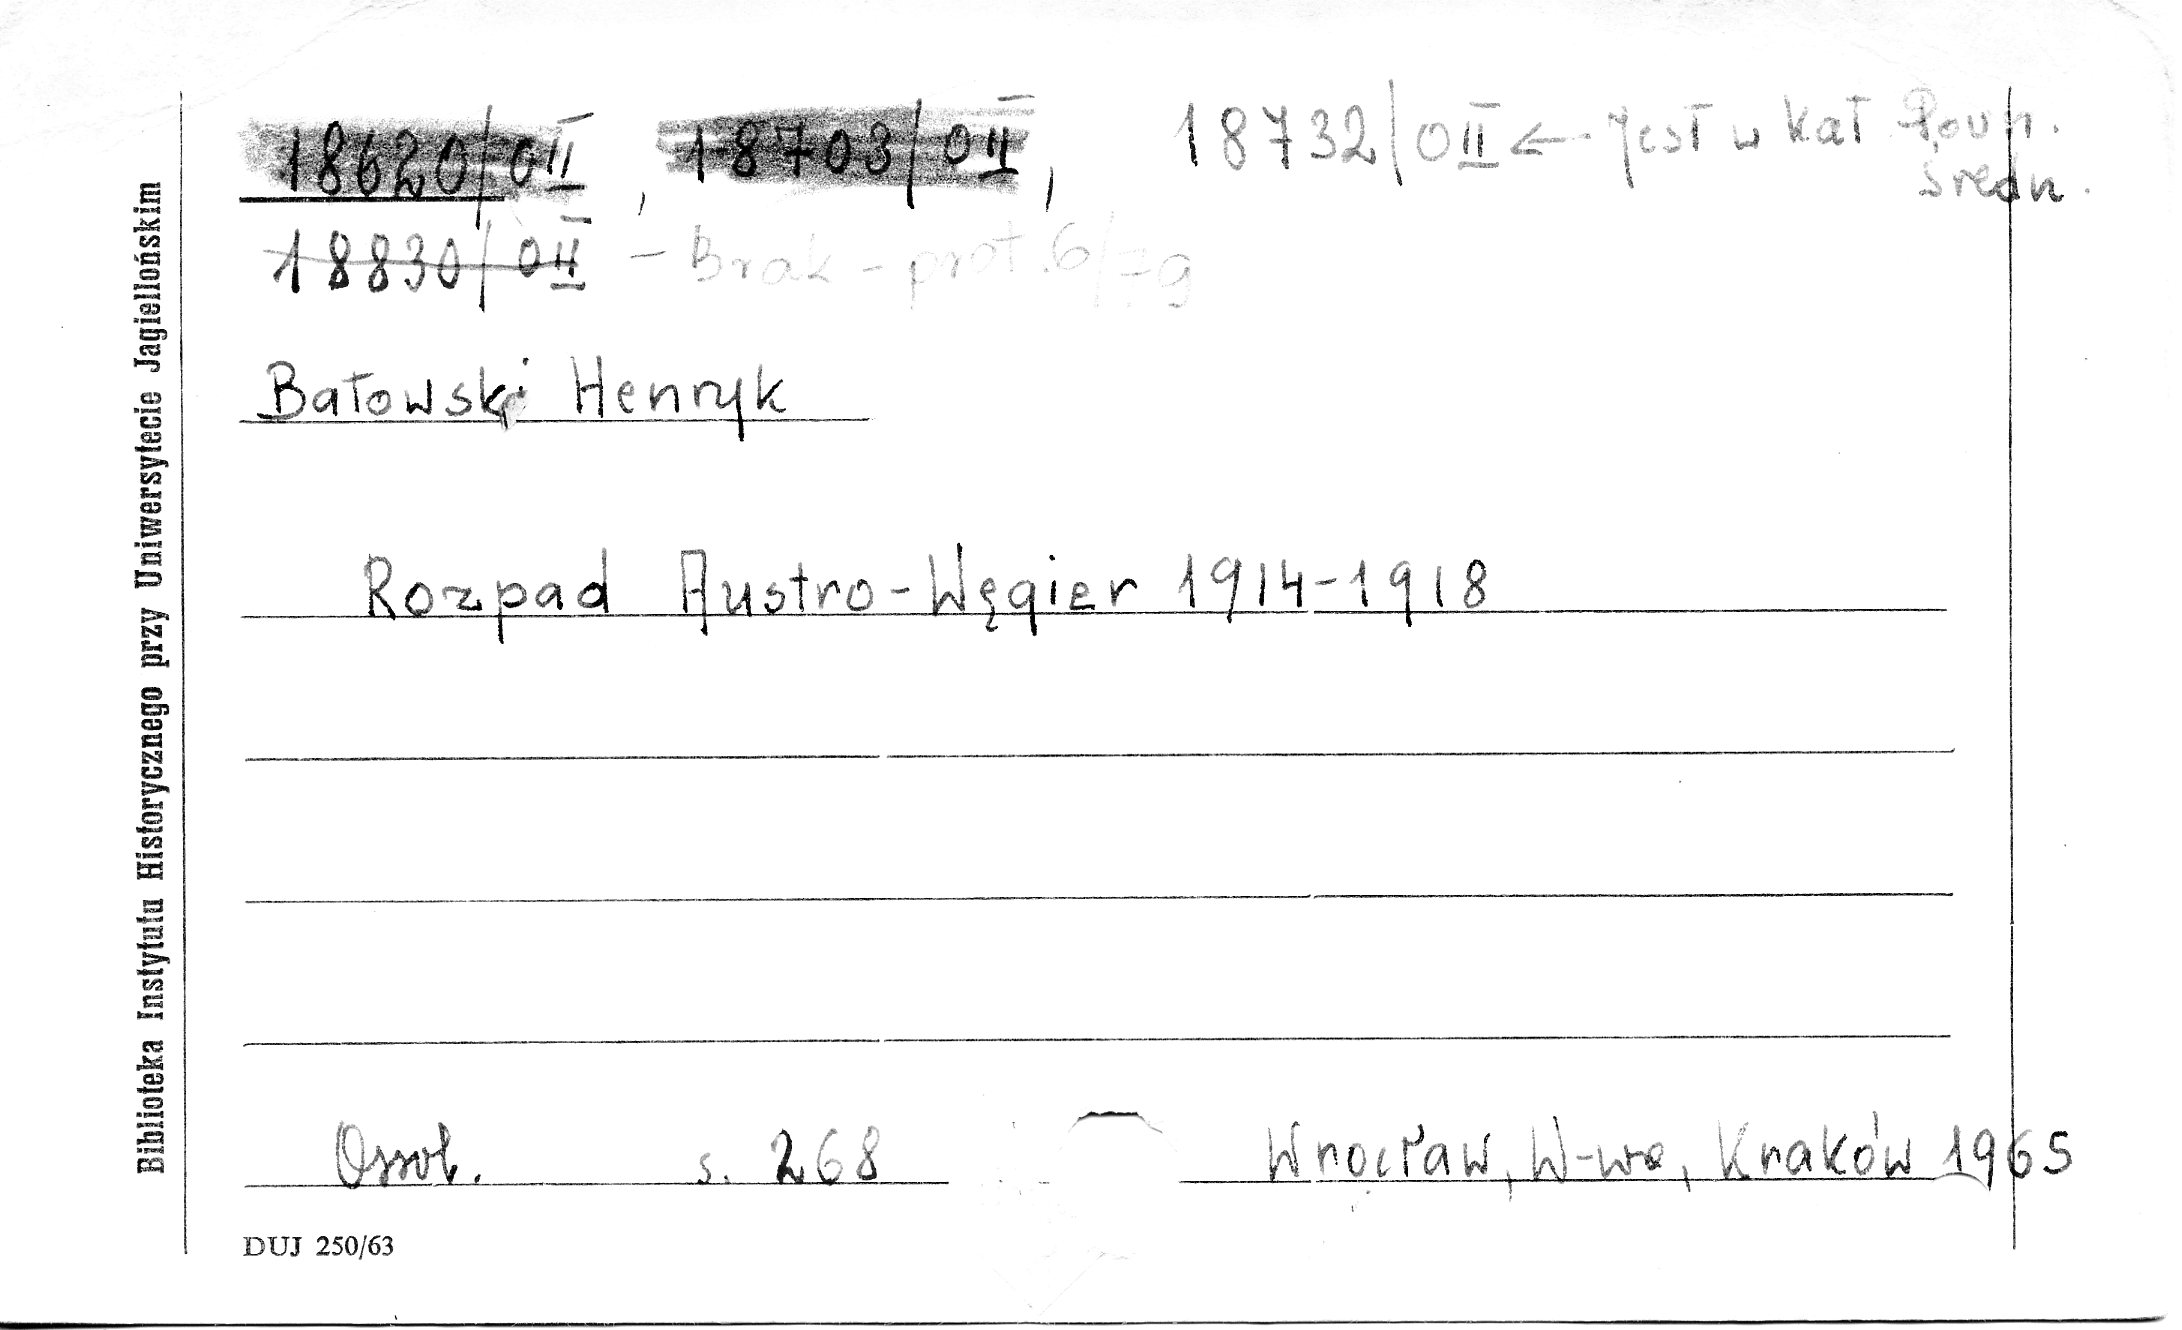 18620/OII, 18703/OII, 18732/OII ← jest w kat Powsz.
średn.
18830/OII – Brak – prot. 6/79
Batowski Henryk
Rozpad Austro-Węgier 1914-1918
Ossol. s. 268 Wrocław, W-wa, Kraków 1965
DUJ 250/63
Biblioteka Instytutu Historycznego przy Uniwersytecie Jagiellońskim